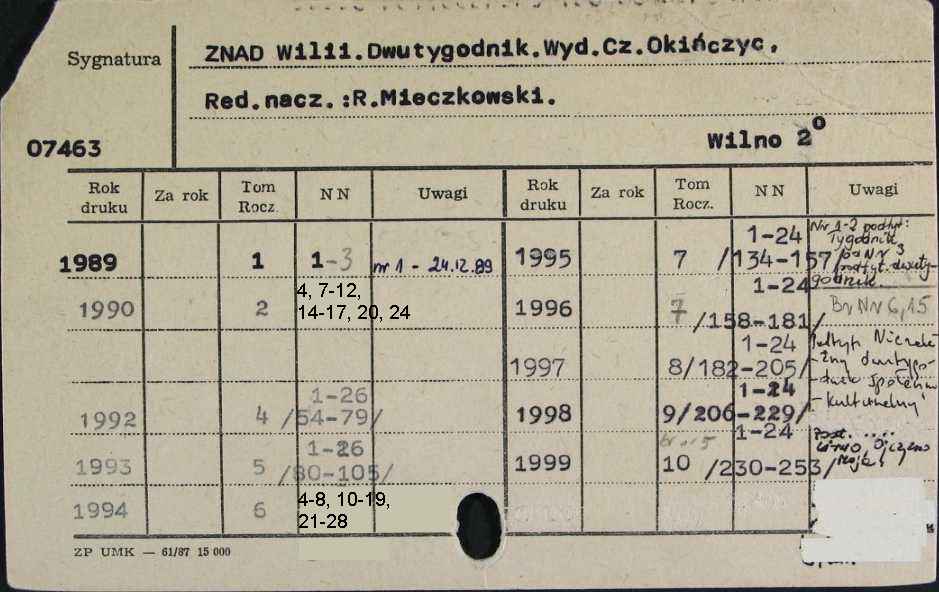 Sygnatura
ZNAD Wilii.Dwutygodnik.Wyd.Cz.Okińczyc.
Red.nacz.:R.Mieczkowski.
07463
Wilno 2o
Rok druku Za rok Tom Rocz. N N Uwagi Rok druku Za rok Tom Rocz. N N Uwagi
1989 1 1-3 nr 1 - 24.12.89
1990 2 4, 7-12,
14-17, 20, 24
1992 4 1-26
/54-79/
1993 5 1-26
/80-105/
1994 6 4-8, 10-19,
21-28
1995 7 1-24
/134-157/
Nr 1-2 podtyt:
Tygodnik
od Nr 3
podtyt. dwuty-
godnik.
1996 7 1-24
/158-181/
Br Nr 6,15
1997 8 1-24
/182-205/
dwutygo-
-kulturalny
1998 9 1-24
/206-229/
1999 10 1-24
/230-253/
ZP UMK — 61/87 15 000